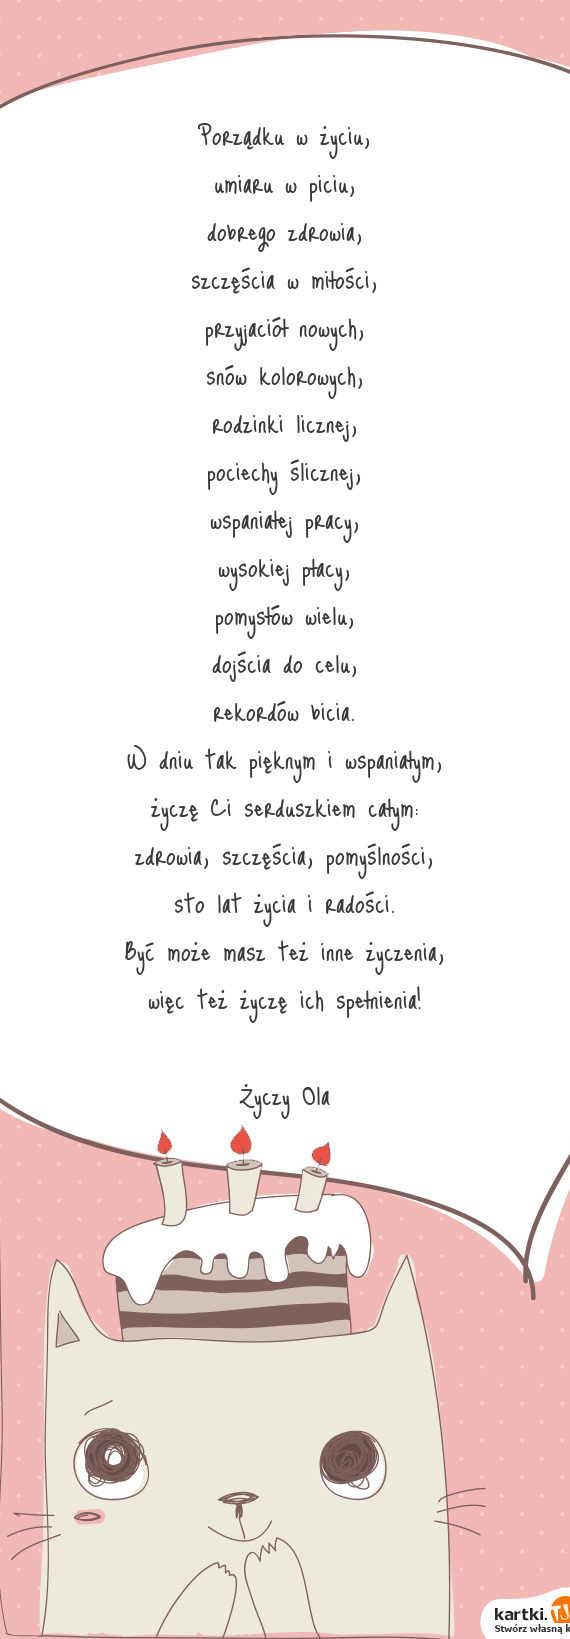 Porządku w życiu,
umiaru w piciu,
dobrego zdrowia,
szczęścia w miłości,
przyjaciół nowych,
snów kolorowych,
rodzinki licznej,
pociechy ślicznej,
wspaniałej pracy,
wysokiej płacy,
pomysłów wielu,
dojścia do celu,
rekordów bicia.
W dniu tak pięknym i wspaniałym,
życzę Ci serduszkiem całym:
zdrowia, szczęścia, pomyślności,
sto lat życia i radości.
Być może masz też inne życzenia,
więc też życzę ich spełnienia!
Życzy Ola
kartki.TJ
Stwórz własną k